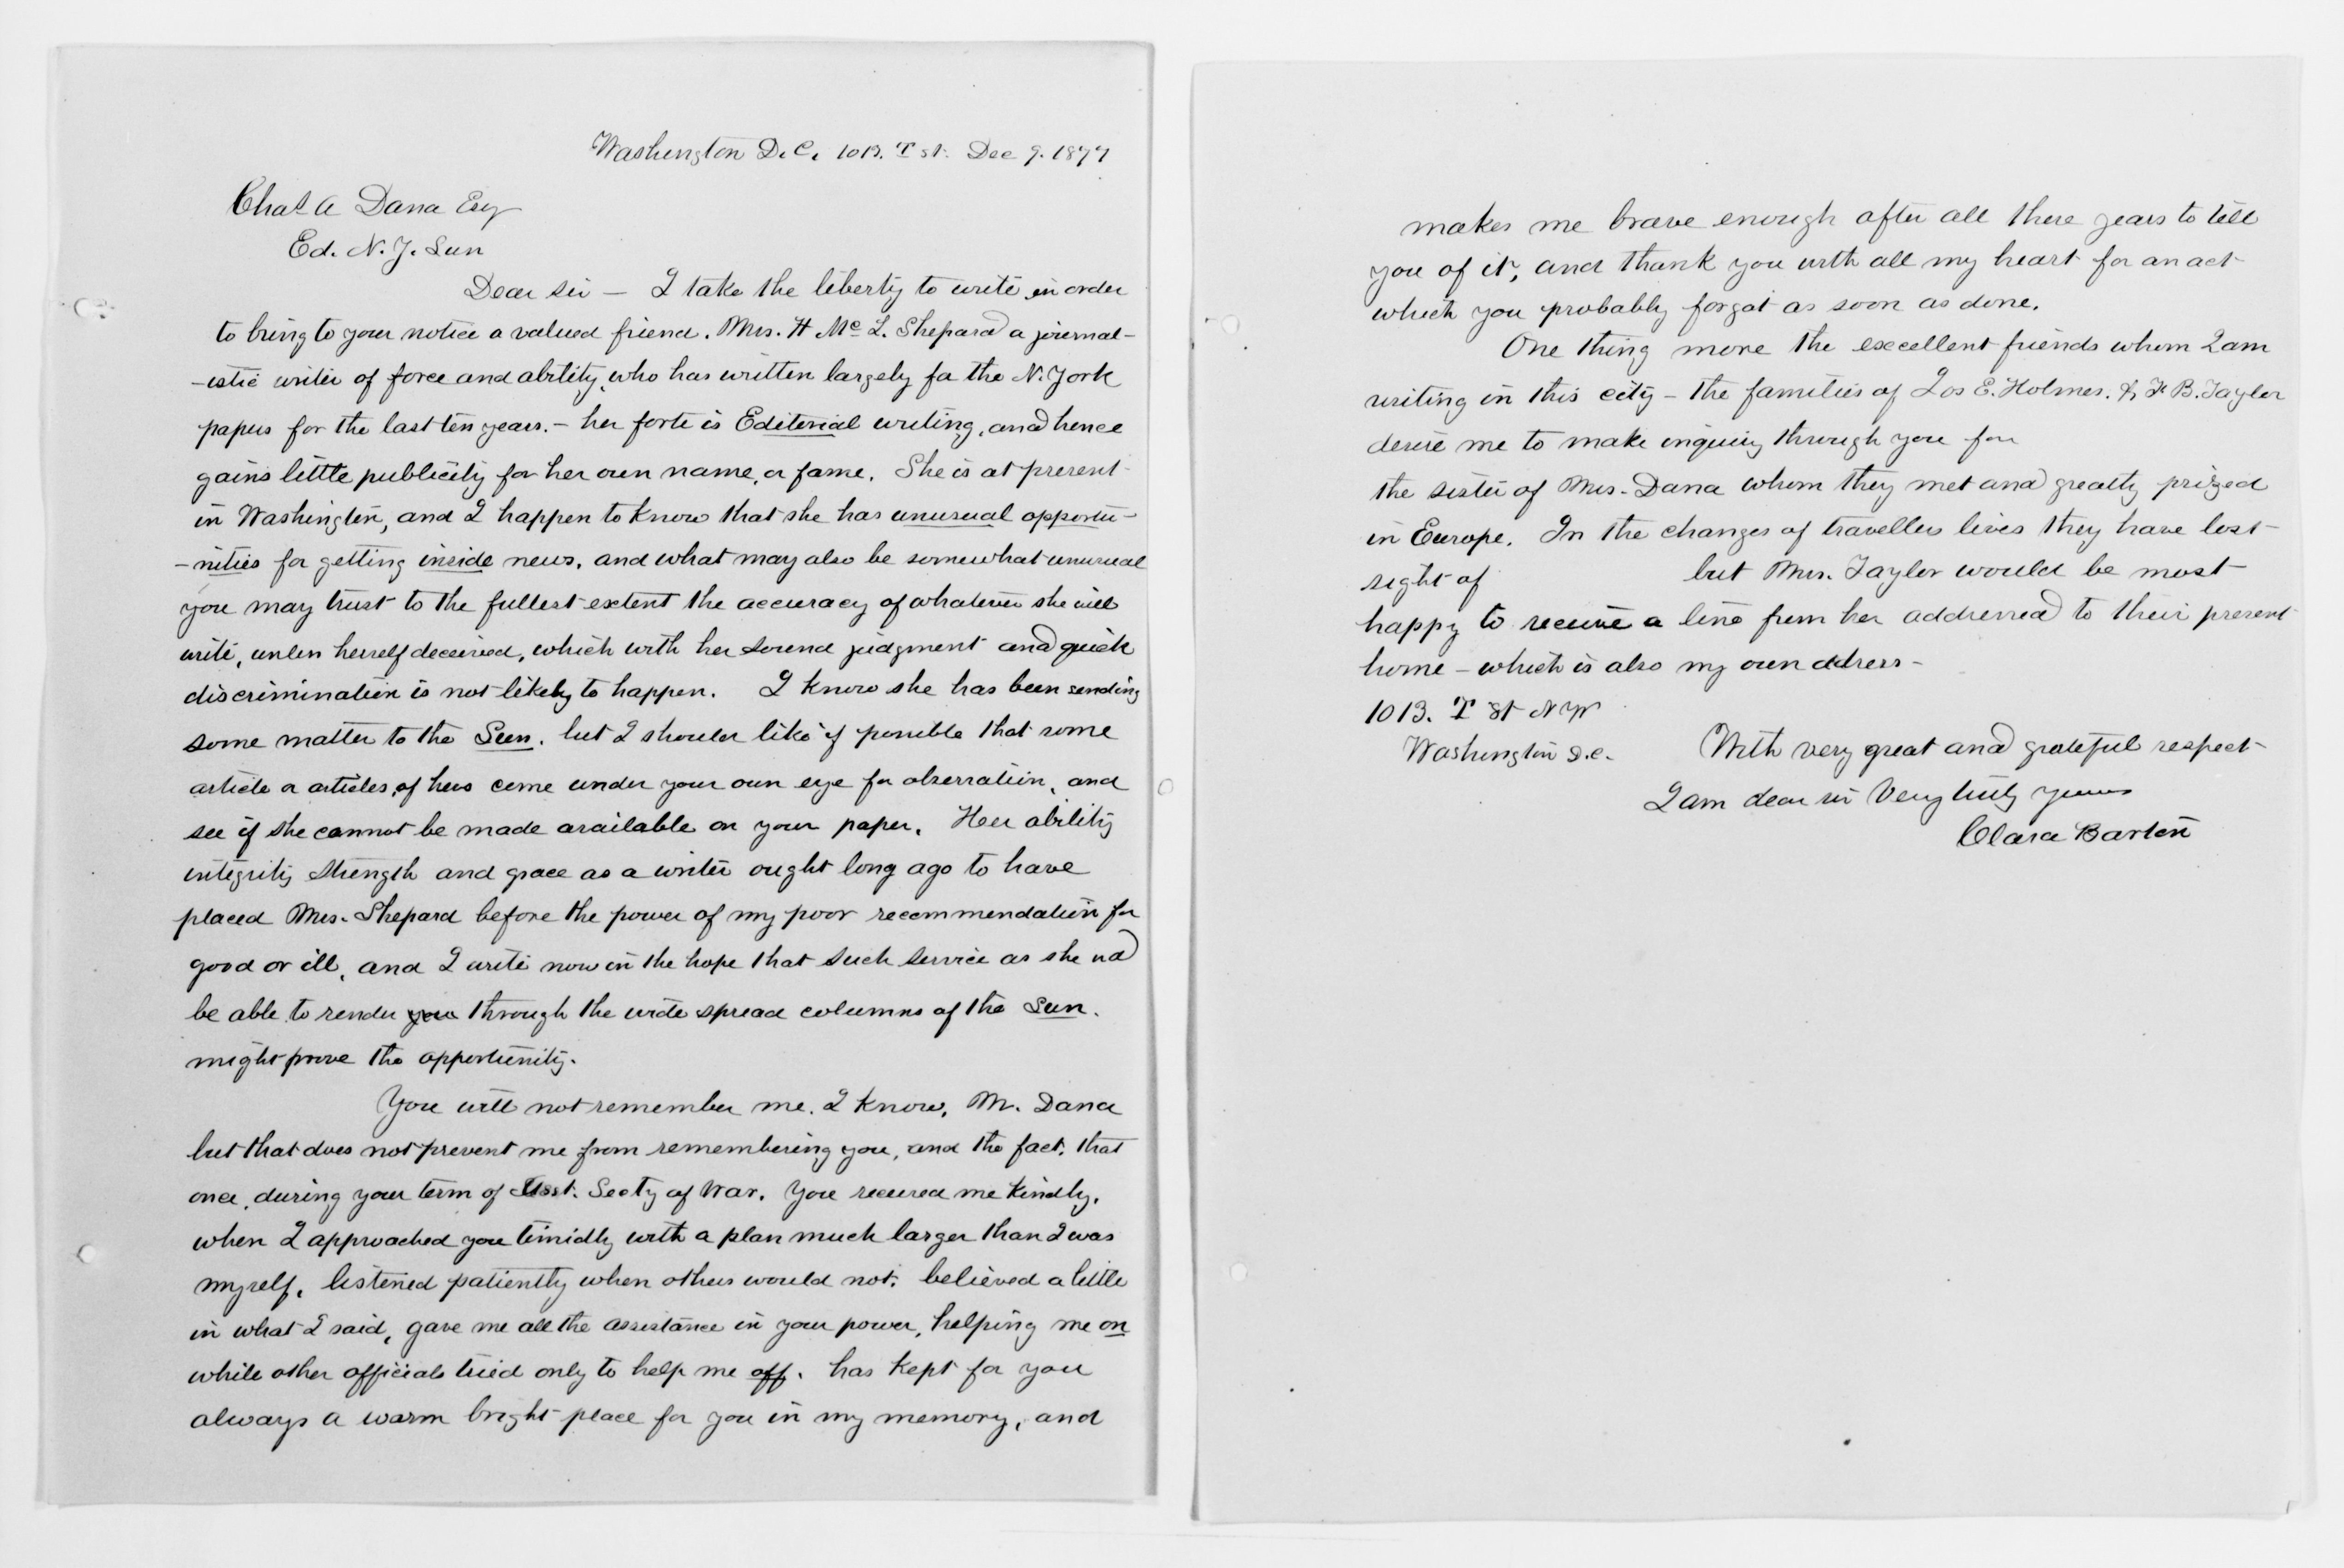 Washington D.C. 1013. T st. Dec 9. 1877
Chas. A Dana Esq
Ed. N.Y. Sun
Dear Sir — I take the liberty to write in order
to bring to your notice a valued friend. Mrs. H Mc L. Shepard a journal-
-istic writer of force and ability, who has written largely for the N. York
papers for the last ten years. - her forte is Editorial writing, and hence
gains little publicity for her own name, or fame. She is at present
in Washington, and I happen to know that she has unusual opportu-
-nities for getting inside news, and what may also be somewhat unusual
you may trust to the fullest extent the accuracy of whatever she will
write, unless herself deceived, which with her sound judgment and quick
discrimination is not likely to happen. I know she has been sending
some matter to the Sun. but I should like if possible that some
article or articles of hers come under your own eye for observation, and
see if she cannot be made available on your paper. Her ability
integrity strength and grace as a writer ought long ago to have
placed Mrs. Shepard before the power of my poor recommendation for
good or ill, and I write now in the hope that such service as she wd
be able to render you through the wide spread columns of the Sun.
might prove the opportunity.
You will not remember me. I know, Mr. Dana
but that does not prevent me from remembering you, and the fact, that
once, during your term of Asst. Secty of War. You received me kindly,
when I approached you timidly with a plan much larger than I was
myself, listened patiently when others would not. believed a little
in what I said, gave me all the assistance in your power, helping me on
while other officials tried only to help me off. has kept for you
always a warm bright place for you in my memory, and
makes me brave enough after all these years to tell
you of it, and thank you with all my heart for an act
which you probably forgot as soon as done.
One thing more the excellent friends whom I am
writing in this city - the families of Jos E. Holmes. & F. B. Taylor
desire me to make inquiry through you for
the sister of Mrs. Dana whom they met and greatly prized
in Europe. In the changes of travellers lives they have lost
sight of but Mrs. Taylor would be most
happy to receive a line from her addressed to their present
home - which is also my own address -
1013. T St N W
Washington D.C. With very great and grateful respect
I am dear sir Very truly yours
Clara Barton